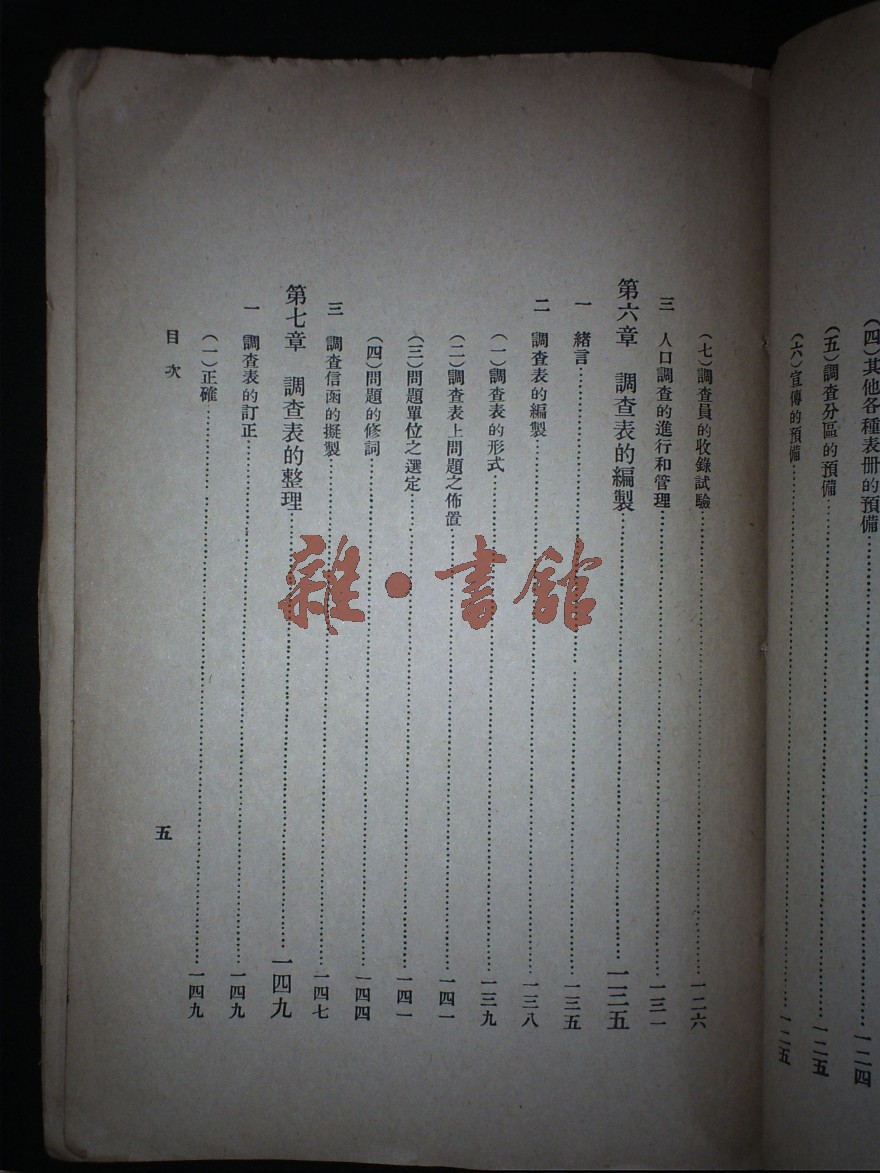 (四)其他各種表册的預備……一二四
(五)調查分區的預備……一二五
(六)宣傳的預備……一二五
(七)調查員的收錄試驗……一二六
三 人口調查的進行和管理……一三一
第六章 調查表的編製……一三五
一 緒言……一三五
二 調查表的編製……一三八
(一)調查表的形式……一三九
(二)調查表上問題之佈置……一四一
(三)問題單位之選定……一四一
(四)問題的修詞……一四四
三 調查信函的擬製……一四七
第七章 調查表的整理……一四九
一 調查表的訂正……一四九
(一)正確……一四九
目次
五
雜·書館